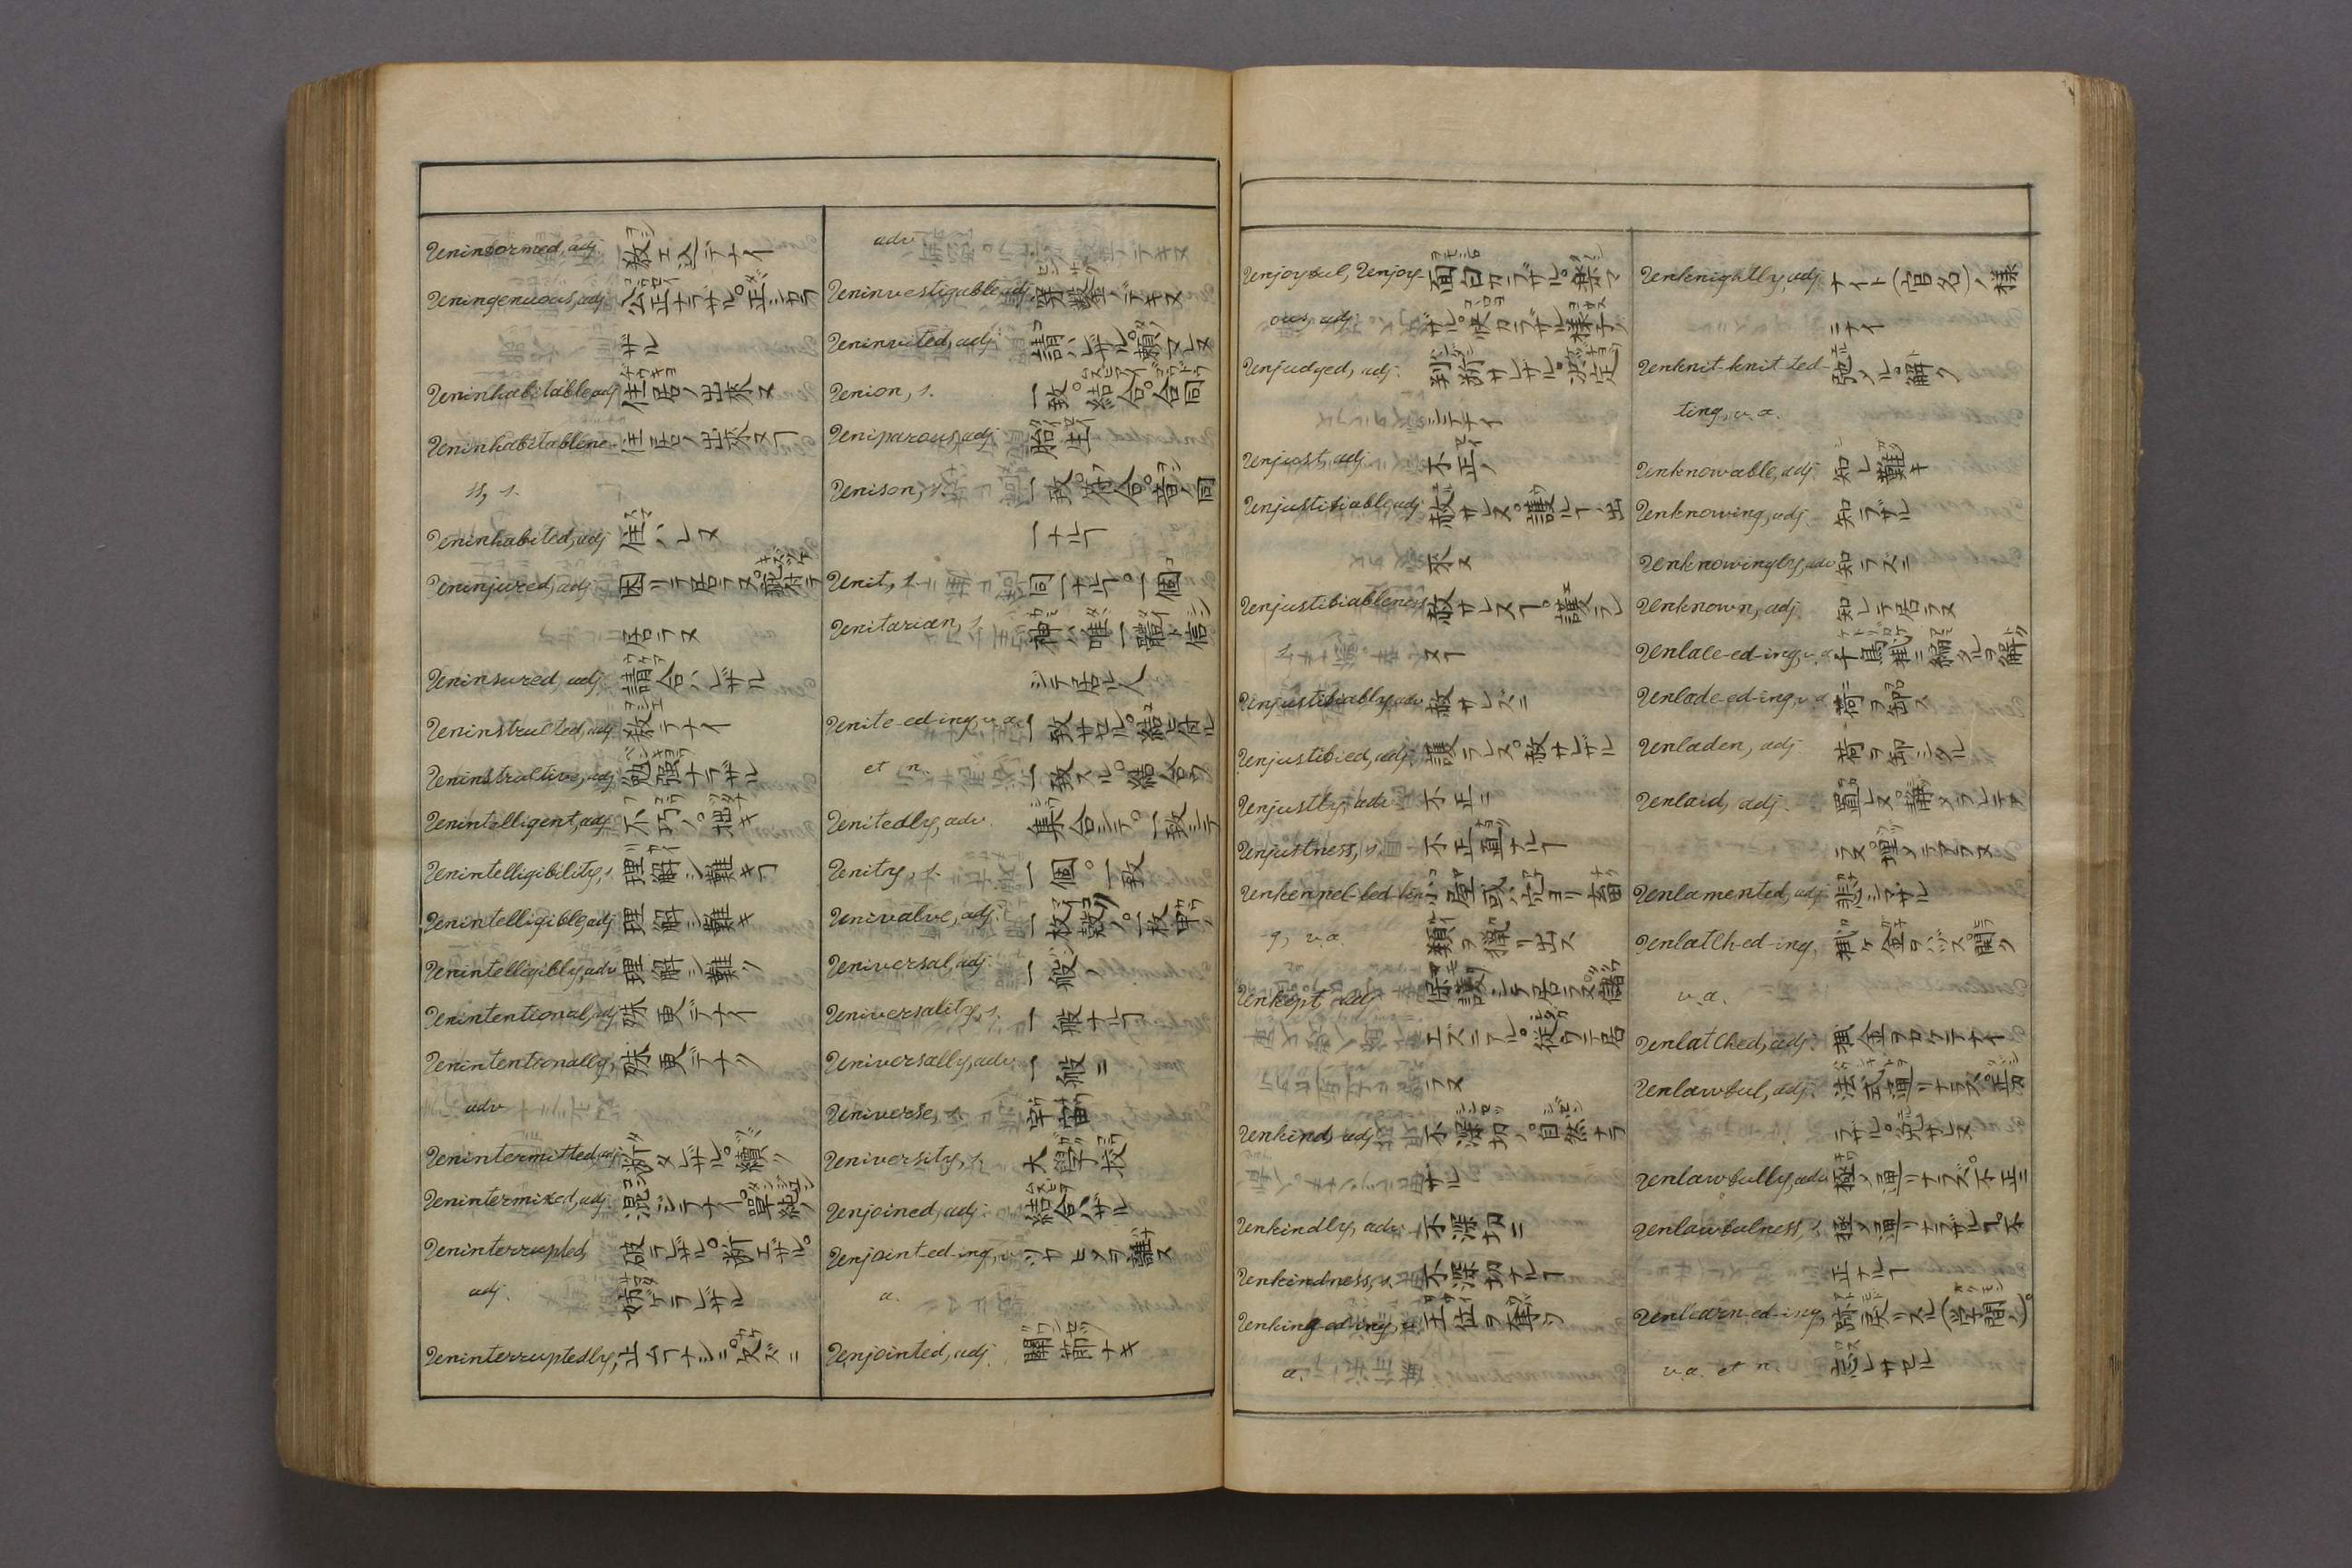 Uninformed, adj. 教エ込デナイ
Uningenuous, adj. 公正ナラザル。正シカラ
ザル
Uninhabitable adj. 住居ノ出来ヌ
Uninhabitablene- 住居ノ出来ヌヿ
ss, s.
Uninhabited, adj 住ハレヌ
Uninjured, adj. 困リテ居ラヌ。疵付テ
居ラヌ
Uninsured, adj. 請合ハレザル
Uninstructed, adj. 教テナイ
Uninstructive, adj 勉強ナラザル
Unintelligent, adj. 不巧ノ。拙キ
Unintelligibility, s. 理解シ難キヿ
Unintelligible, adj 理解シ難キ
Unintelligibly, adv 理解シ難ク
Unintentional, adj 殊更デナイ
Unintentionally, 殊更デナク
adv
Unintermitted, adj. 断タレザル。續ク
Unintermixed, adj. 混ジラナイ。單純ノ
Uninterrupted, 破ラレザル。断エザル。
adj. 妨ゲラレザル
Uninterruptedly, 止ムヿナシニ。欠ズニ
adv
Uninvestigable adj. 穿鑿ノデキヌ
Uninvited, adj. 請ハレザル。頼マレヌ
Union, s. 一致。結合。合同
Uniparous, adj 胎生
Unison, s. 一致。符合。音ノ同
一ナルヿ
Unit, s. 同一ナルヿ。一個
Unitarian, s. 神ハ唯一體ト信
ジテ居ル人
Unite-ed-ing, v. a. 一致サセル。結ビ付ル
et n. 一致スル。結合フ
Unitedly, adv. 集合シテ。一致シテ
Unity, s. 一個。一致
Univalve, adj. 一枚殻ノ。一枚甲ノ
Universal, adj. 一般ノ
Universality, s. 一般ナルヿ
Universally, adv 一般ニ
Universe, s. 宇宙
University, s. 大學校
Unjoined, adj. 結合ハザル
Unjoint-ed-ing, v. ツガヒメヲ離ス
a.
Unjointed, adj. 關節ナキ
Unjoyful, Unjoy- 面白カラザル。樂マ
ous, adj. ザル。快カラザル様子ノ
Unjudged, adj. 判断サレザル。決定
シテナイ
Unjust, adj. 不正ノ
Unjustifiable adj 赦サレヌ。護ルヿ出
来ヌ
Unjustifiableness 赦サレヌヿ。護ラレ
s. ヌヿ
Unjustifiably, adv 赦サレズニ
Unjustified, adj. 護ラレヌ。赦サレザル
Unjustly, adv. 不正ニ
Unjustness, s. 不正直ナルヿ
Unkennel-led-lin- 小屋或ハ穴ヨリ畜
g, v. a. 類ヲ獵リ出ス
Unkept adj. 保護シテ居ラヌ。儲
エズニアル。從ワテ居
ラヌ
Unkind, adj 不深切ノ。自然ナラ
ザル
Unkindly, adv. 不深切ニ
Unkindness, s. 不深切ナルヿ
Unking-ed-ing, v. 王位ヲ奪フ
a.
Unknightly, adj. ナイト(官名)ノ様
ニナイ
Unknit-knit-ted- 弛メル。解ク
ting, v. a.
Unknowable, adj. 知レ難キ
Unknowing, adj. 知ラザル
Unknowingly, adv 知ラズニ
Unknown, adj. 知レテ居ラヌ
Unlace-ed-ing, v. a 千鳥掛ニ編タルヲ解ク
Unlade-ed-ing, v. a 荷ヲ卸ス
Unladen, adj. 荷ヲ卸シタル
Unlaid, adj. 置レヌ。靜メラレテア
ラヌ。埋メテアラヌ
Unlamented, adj. 悲シマザル
Unlatch-ed-ing, 掛ケ金ヲハヅス。開ク
v. a.
Unlatched, adj. 掛金ヲカケテナイ
Unlawful, adj. 法式通リナラズ。正カ
ラザル。免サレヌ
Unlawfully, adv 極メ通リナラズ。不正ニ
Unlawfulness, s. 極メ通リナラザルヿ。不
正ナルヿ
Unlearn-ed-ing, 跡戻リスル(学問ノ)。
v. a. et n. 忘レサセル